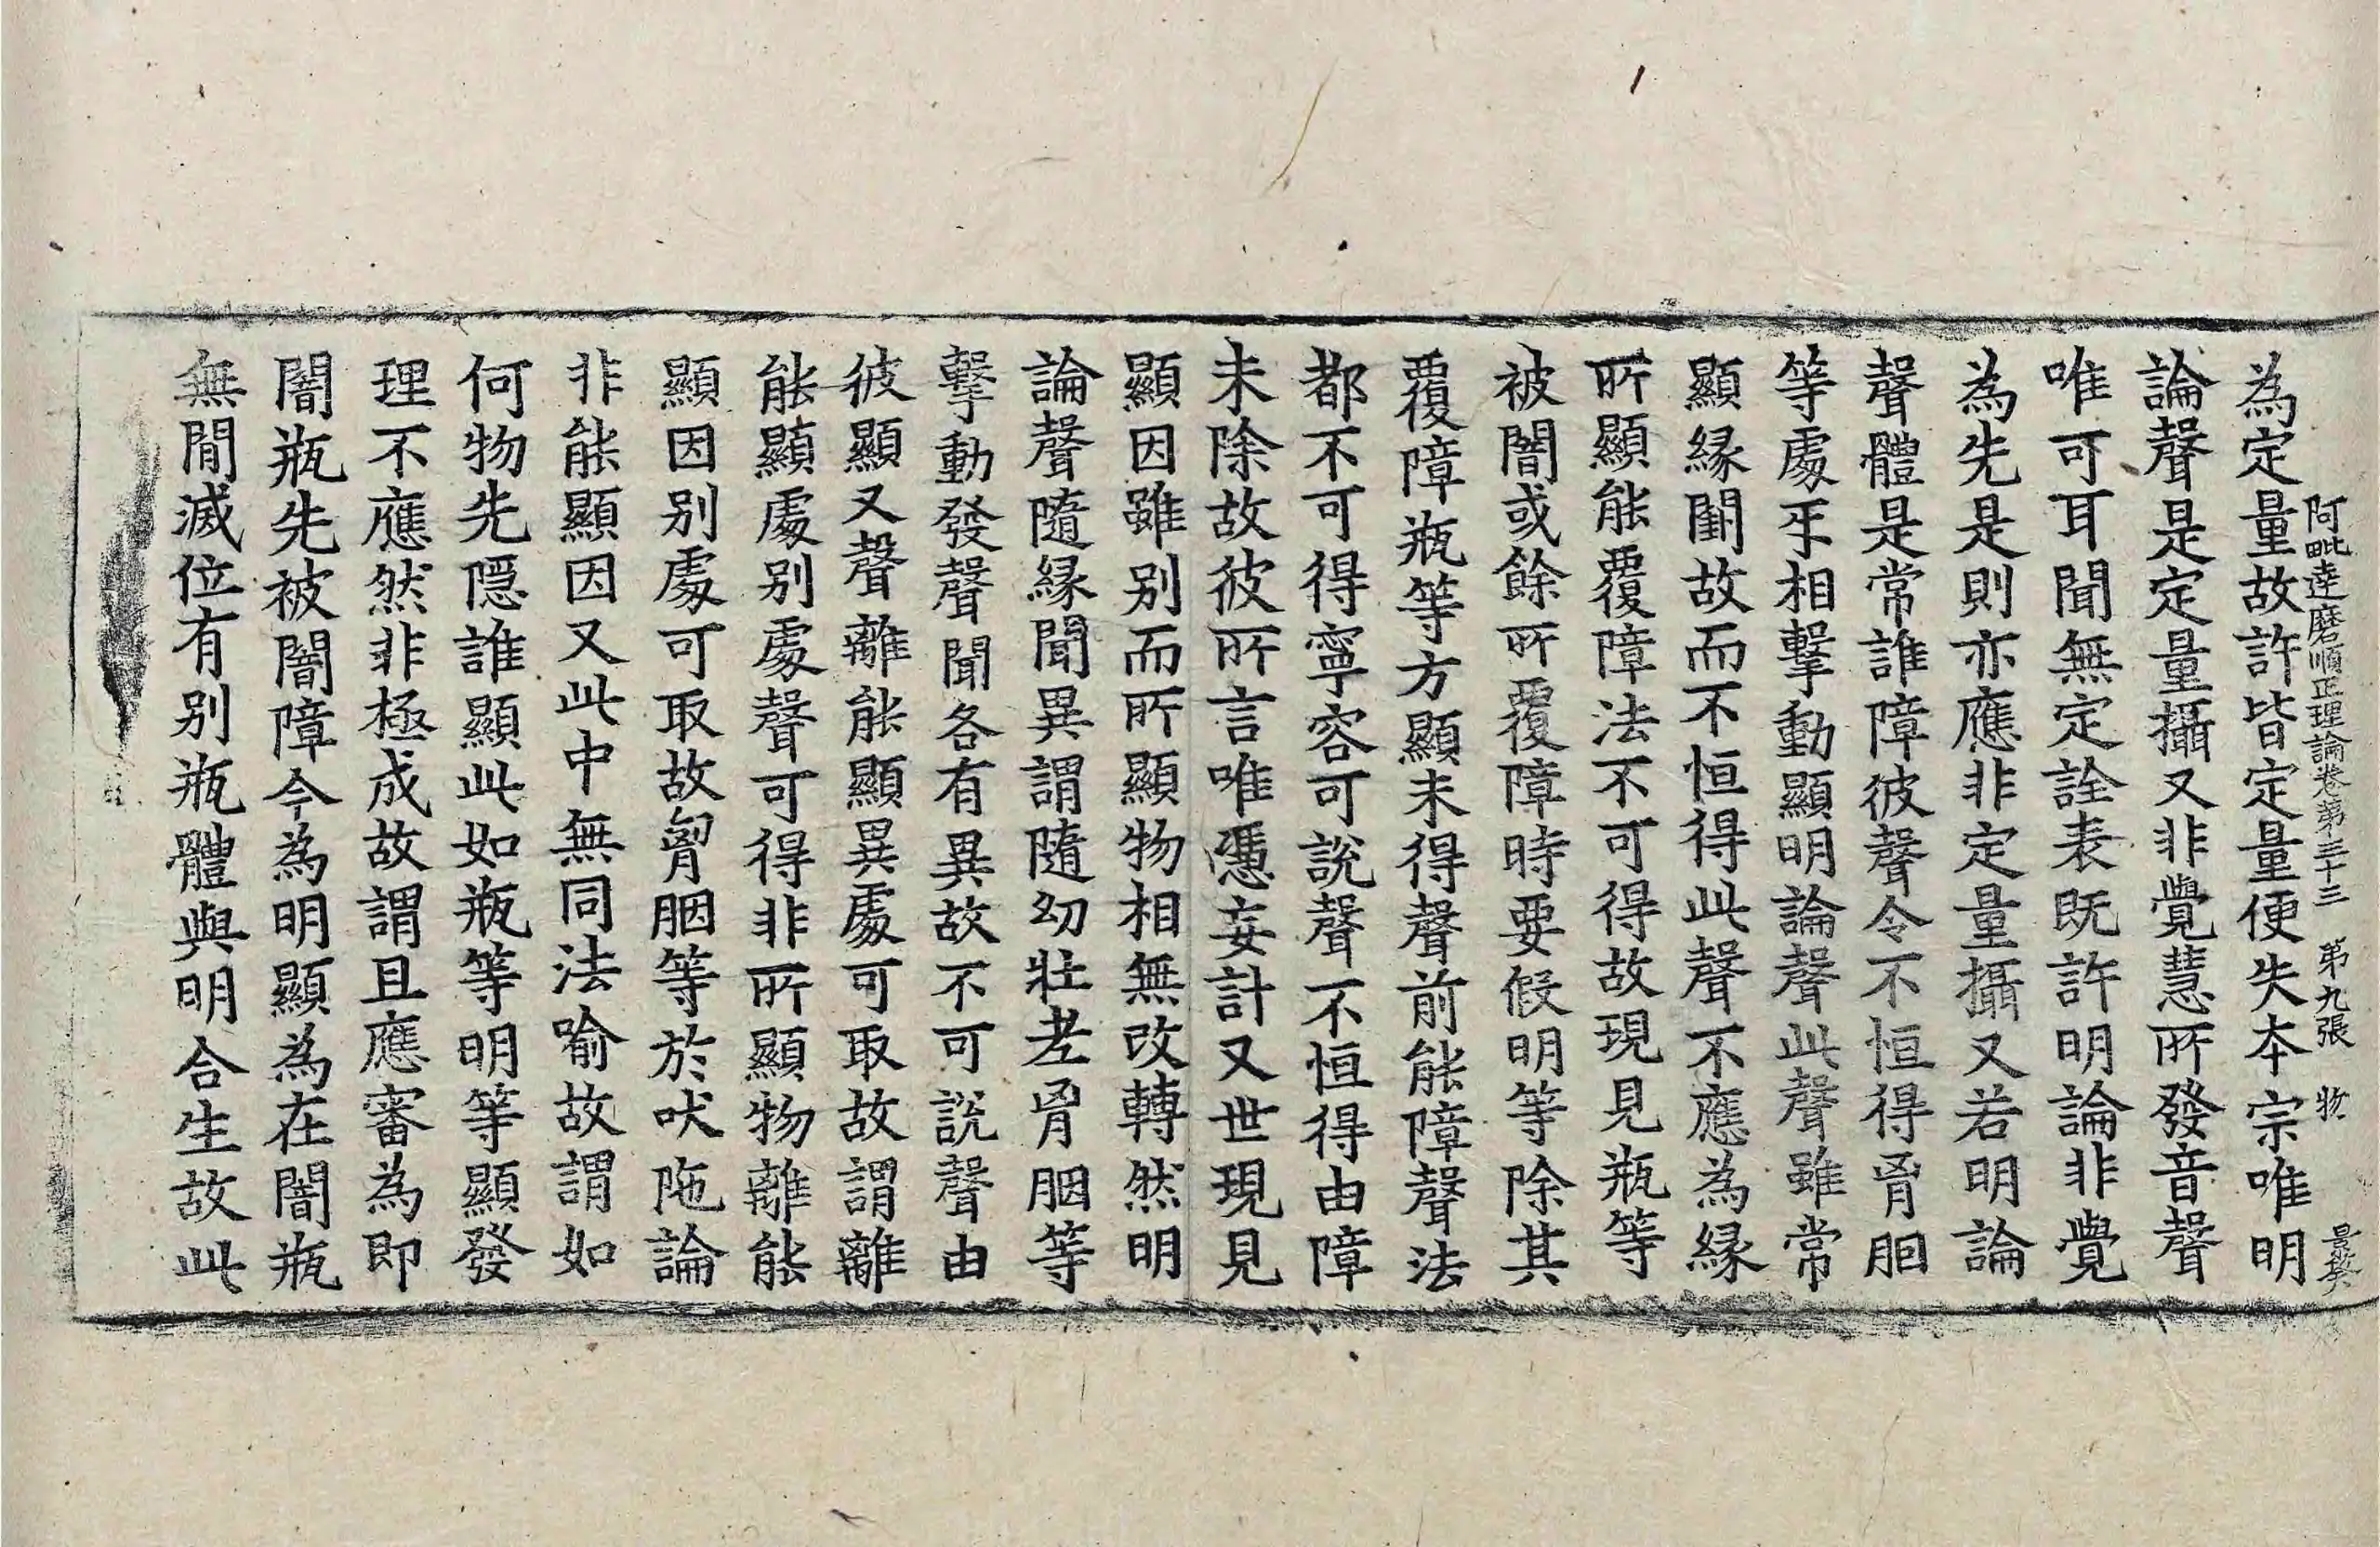 為定量故許皆定量便失本宗唯明
阿毗達磨順正理論卷第三十三 第九張 物
景癸
論聲是定量攝又非覺慧所發音聲
唯可耳聞無定詮表既許明論非覺
為先是則亦應非定量攝又若明論
聲體是常誰障彼聲令不恒得胷𦙄
等處𤓰相擊動顯明論聲此聲雖常
顯緣闕故而不恒得此聲不應為緣
所顯能覆障法不可得故現見瓶等
被闇或餘所覆障時要假明等除其
覆障瓶等方顯未得聲前能障聲法
都不可得寧容可說聲不恒得由障
未除故彼所言唯憑妄計又世現見
顯因雖別而所顯物相無改轉然明
論聲隨緣聞異謂隨幼壯老胷胭等
擊動發聲聞各有異故不可說聲由
彼顯又聲離能顯異處可取故謂離
能顯處別處聲可得非所顯物離能
顯因別處可取故胷胭等於吠陁論
非能顯因又此中無同法喻故謂如
何物先隱誰顯此如瓶等明等顯發
理不應然非極成故謂且應審為即
闇瓶先被闇障今為明顯為在闇瓶
無間滅位有別瓶體與明合生故此